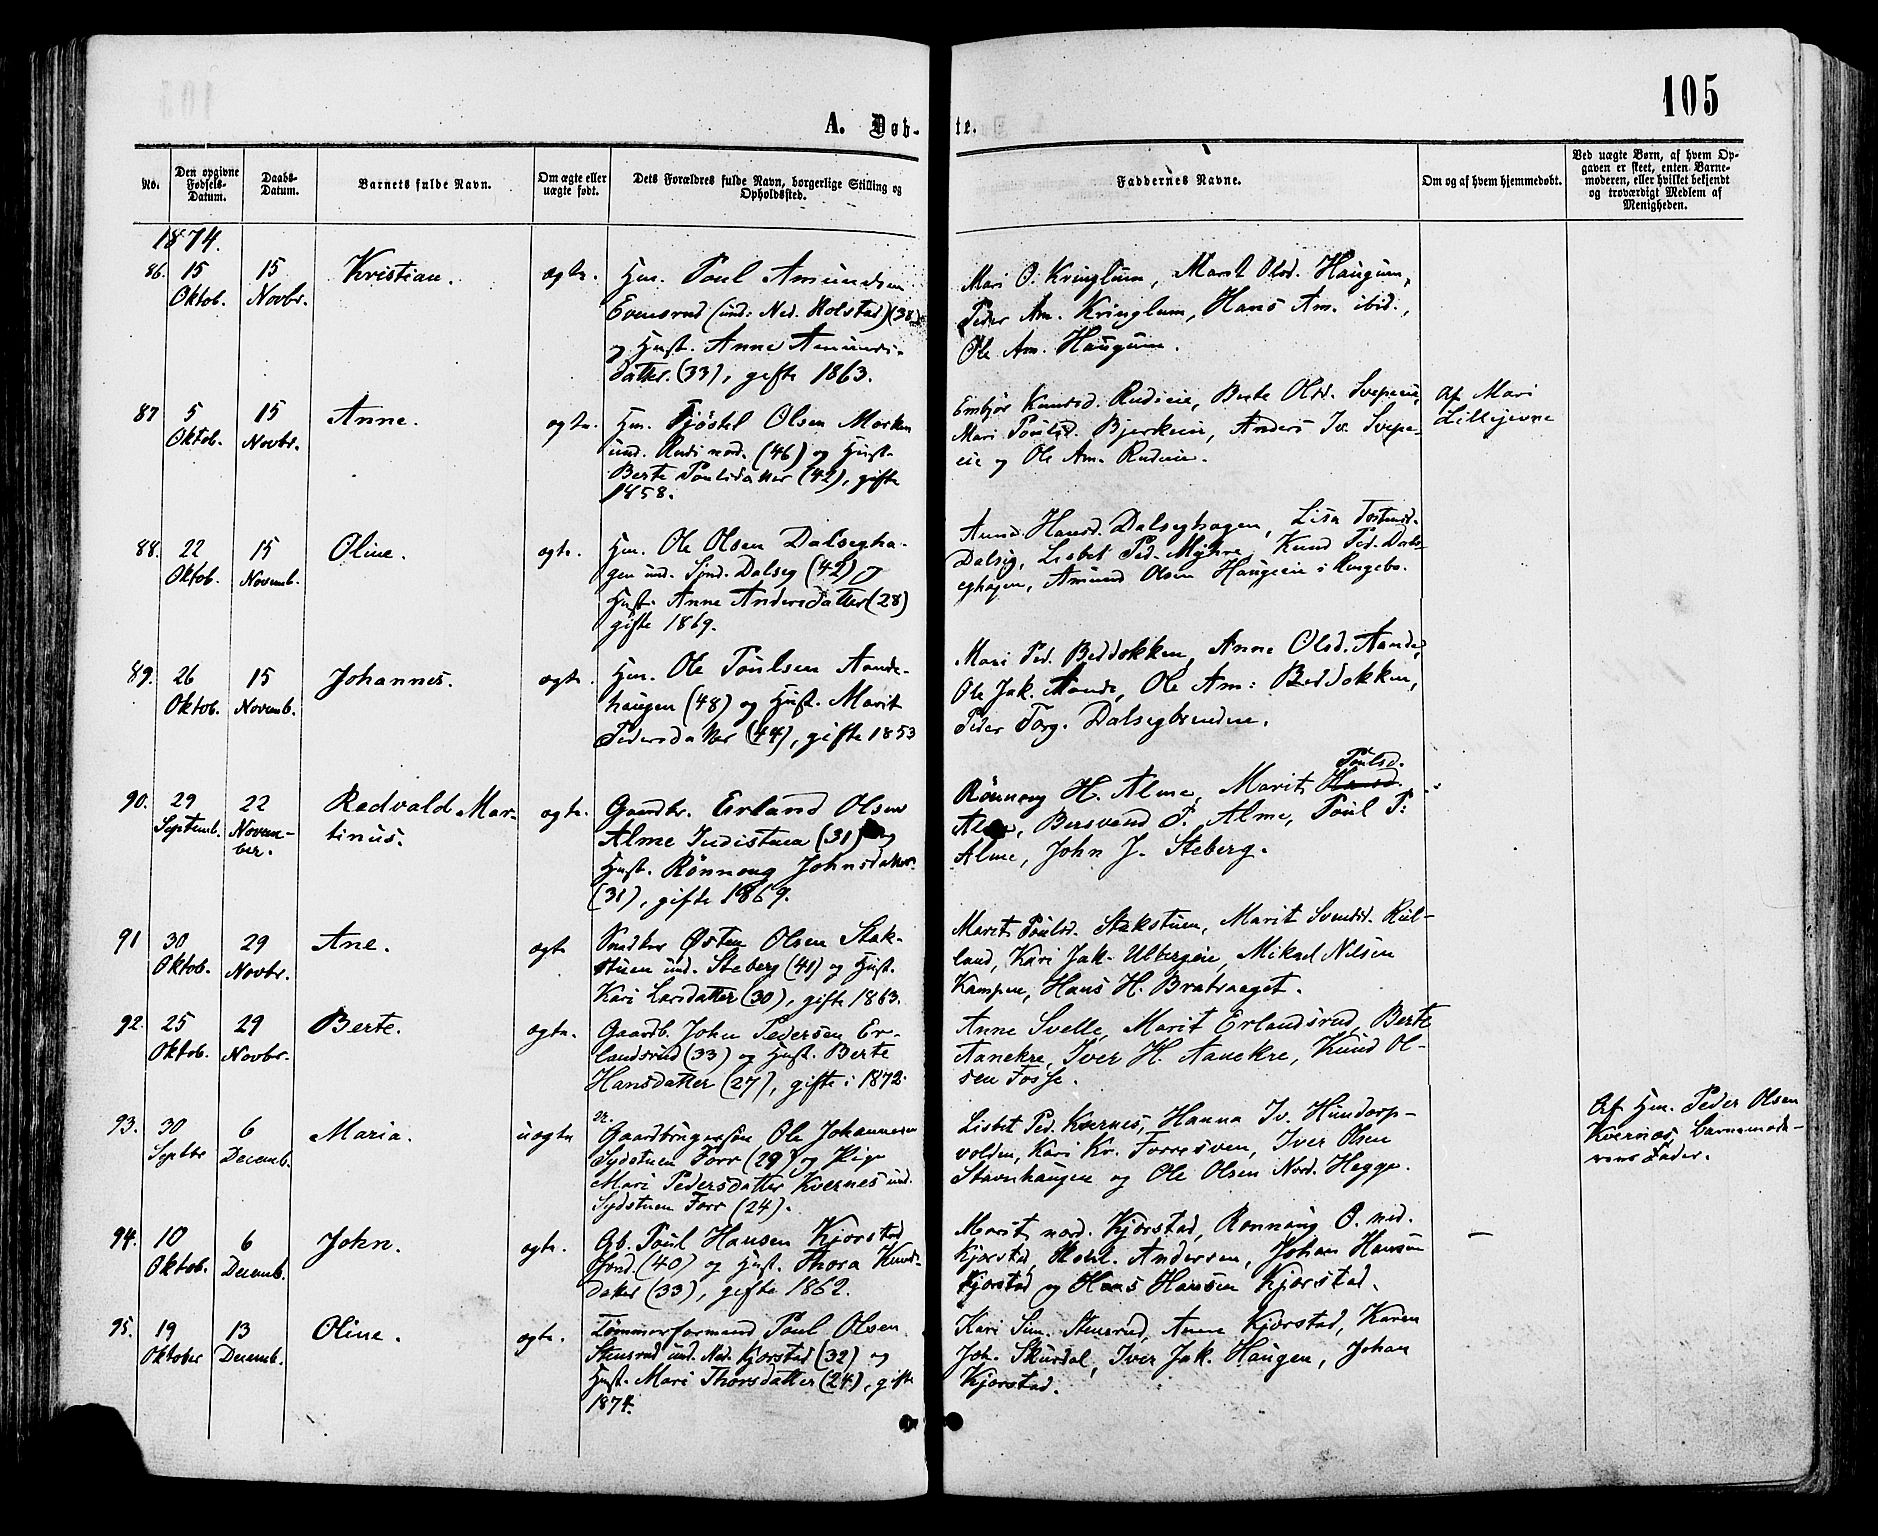 105
A. Døb-
te.
No.
Den opgivne
Fødsels-
Datum.
Daabs-
Datum.
Barnets fulde Navn.
Om ægte eller
uægte født.
Dets Forældres fulde Navn, borgerlige Stilling og
Opholdssted.
Faddernes Navne.
Om og af hvem hjemmedøbt.
Ved uægte Børn, af hvem Op-
gaven er skeet, enten Barne-
moderen, eller hvilket bekjendt
og troværdigt Medlem af
Menigheden.
1874.
86. 15 Oktob.
15 Novbr.
Kristian.
ægte.
Hm. Poul Amundsen
Evensrud (und: Ned. Kolstad) (38)
og Hust. Anne Amunds-
datter. (33), gifte 1863.
Mari O. Kringlum, Marit Olsd. Haugum,
Peder Am. Kringlum, Hans Am. ibid.,
Ole Am. Haugum.
87 5 Oktob.
15 Novbr.
Anne.
ægte.
Hm. Kjøstel Olsen Morken
und. Rudi nord. (46) og Hust.
Berte Poulsdatter (42), gifte
1858.
Embjør Knudsd. Rudieie, Berte Olsd. Svepeeie,
Mari Poulsd. Bjerkeeie, Anders Iv. Svepe-
eie og Ole Am. Rudieie.
Af Mari
Lillejevne
88. 22 Oktob.
15 Novemb.
Oline.
ægte.
Hm. Ole Olsen Dalsegha-
gen und. Synd. Dalseg (42) og
Hust. Anne Andersdatter (28)
gifte 1869.
Anne Hansd. Dalseghagen, Lisa Tostensd.
Dalseg, Lisbet Ped. Myhre, Knud Ped. Dals-
eghagen, Amund Olsen Haugeeie i Ringebo.
89. 26 Oktob.
15 Novemb.
Johannes.
ægte.
Hm. Ole Poulsen Aande-
haugen (48) og Hust. Marit
Pedersdatter (44), gifte 1853
Mari Ped. Beddokken, Anne Olsd. Aande,
Ole Jak. Aande, Ole Am: Beddokken,
Peder Torg. Dalsegbrenden.
90. 29 Septemb.
22 Novem-
ber.
Redvald Mar-
tinus.
ægte.
Gaardbr. Erland Olsen
Alme Indistuen (31) og
Hust. Rønnoug Johnsdatter
(31), gifte 1869.
Poulsd.
Rønnoug H. Alme, Marit Hansd.
Alme, Bersvend P. Alme, Poul P:
Alme, John J. Steberg.
91 30 Oktob.
29 Novbr.
Ane.
ægte
Snedker Østen Olsen Stak-
stuen und. Steberg (41) og Hust.
Kari Larsdatter (30), gifte 1863.
Marit Poulsd. Stakstuen, Marit Svendsd. Rul-
land, Kari Jak. Ulbergeie, Mikael Nilsen
Kampen, Hans H. Bratvaeget.
92. 25 Oktob.
29 Novbr.
Berte.
ægte.
Gaardb. John Pedersen Er-
landsrud (33) og Hust. Berte
Hansdatter (27), gifte i 1872.
Anne Svelle, Marit Erlandsrud, Berte
Aanekre, Iver H. Aanekre, Knud Ol-
sen Fosse.
93. 30 Septbr
6 Decemb.
Maria.
uægte
Gaardbrugersøn Ole Johannesen
Sydstuen Forr (29) og Pige
Mari Pedersdatter Kvernes und.
Sydstuen Forr (24).
Lisbet Ped. Kvernes, Hanna Iv. Hundorp-
volden, Kari Kr. Forresven, Iver Olsen
Stavnhaugen og Ole Olsen Nord. Hegge.
Af Hm. Peder Olsen
Kvernes, Barnemode-
rens Fader.
94. 10 Oktob.
6 Decemb.
John.
ægte.
Gb. Poul Hansen Kjorstad
synd. (40) og Hust. Thora Knuds-
datter (33), gifte 1862.
Marit nord. Kjorstad, Rønnaug O. ned.
Kjorstad, Andersen, Johan Hansen
Kjorstad og Hans Hansen Kjorstad.
95. 19 Oktober
13 Decemb.
Oline.
ægte.
Tømmerformand Poul Olsen
Stensrud und. Ned. Kjorstad (32) og
Hust. Mari Thorsdatter (24), gifte
1874.
Kari Sim. Stensrud, Anne Kjorstad, Karen
Joh. Skurdal, Iver Jak. Haugen, Johan
Kjorstad.